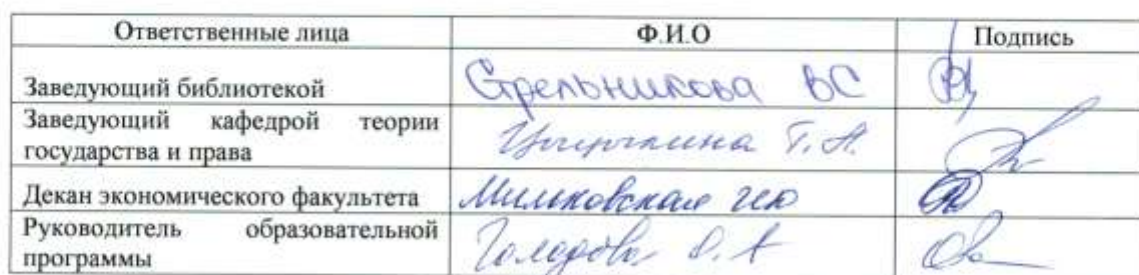 Ответственные лица Ф.И.О Подпись
Заведующий библиотекой Стрельникова ВС
Заведующий кафедрой теории
государства и права Т.А.
Декан экономического факультета Мильковская
Руководитель образовательной
программы